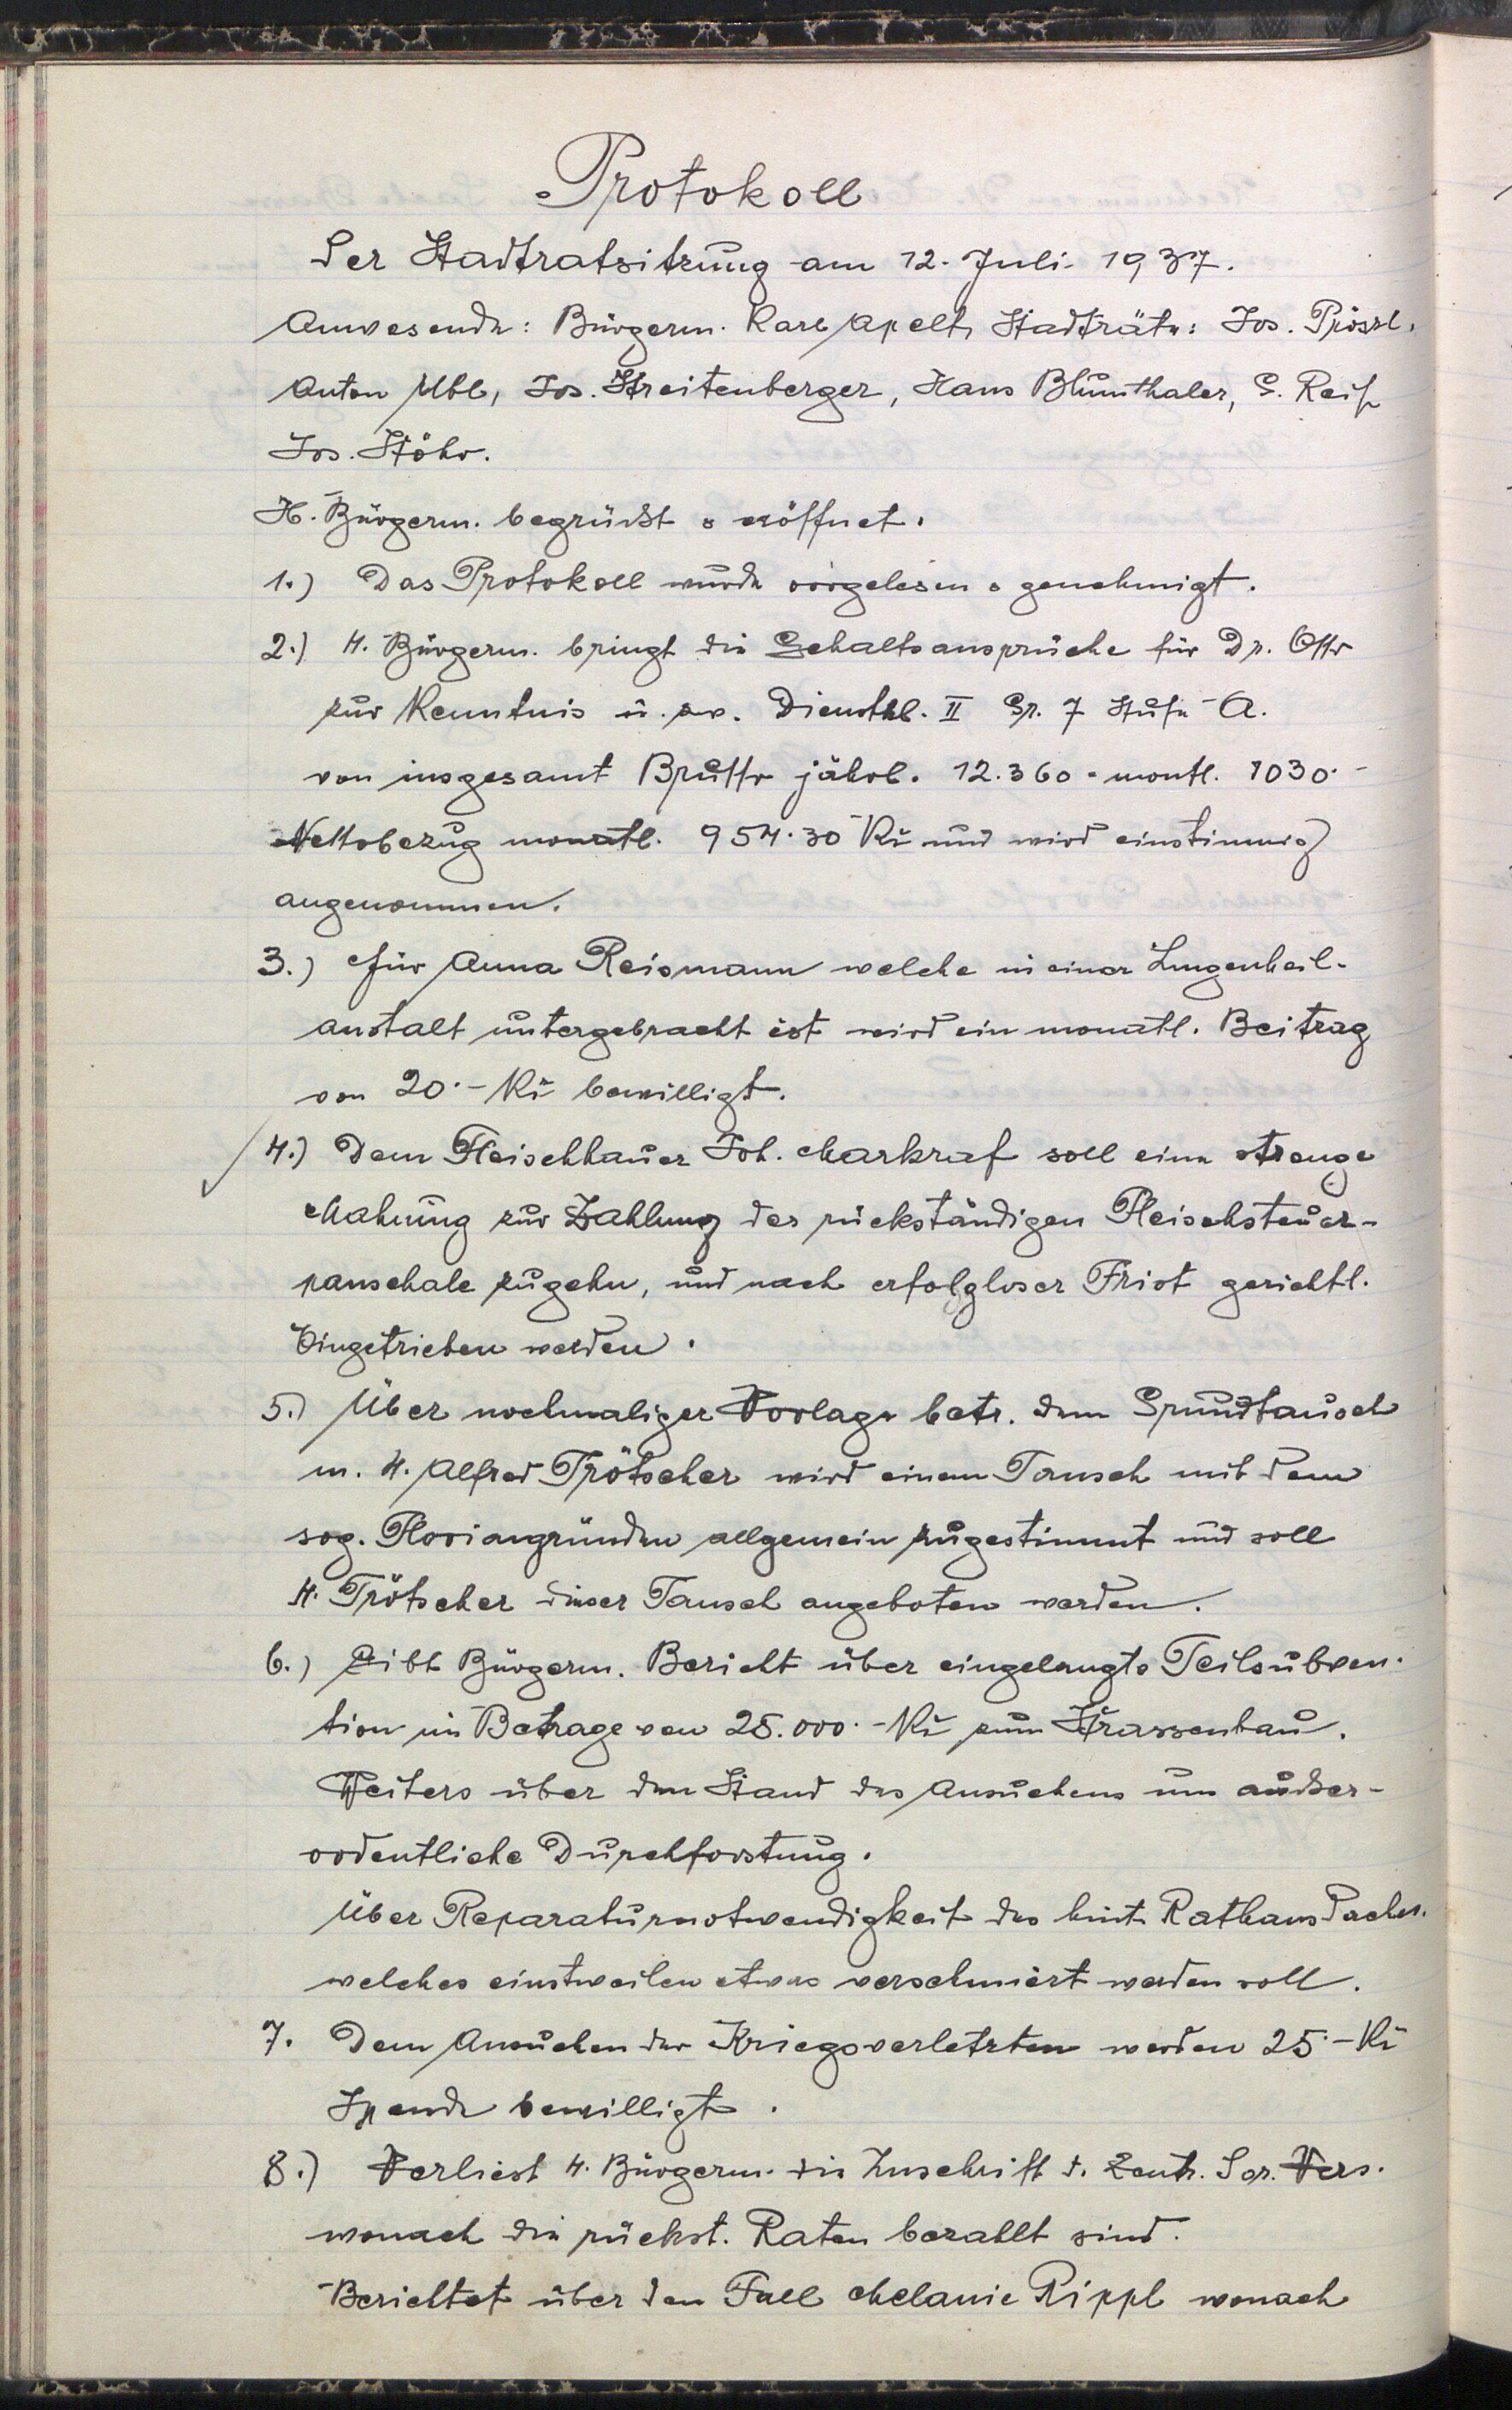 Protokoll
Der Stadtratsitzung am 12. Juli 1937.
Anwesende: Bürgerm. Karl Apelt, Stadträte: Jos. Prössl,
Anton Ubl, Jos. Streitenberger, Hans Blumthaler, G. Reiß
Jos. Stöhr.
H. Bürgerm. begrüßt & eröffnet.
1.) Das Protokoll wurde vorgelesen & genehmigt.
2.) H. Bürgerm. bringt die Gehaltsansprüche für Dr. Otto
zur Kenntnis u. zw. Dienstkl. II Gr. 7 Stufe A.
von insgesamt Brutto jährl. 12.360 - montl. 1030.-
Nettobezug monatl. 954.30 Kč und wird einstimmig
angenommen.
3.) Für Anna Reismann welche in einer Lungenheil-
anstalt untergebracht ist wird ein monatl. Beitrag
von 20.- Kč bewilligt.
4.) Dem Fleischhauer Joh. Markraf soll eine strenge
Mahnung zur Zahlung der rückständigen Fleischsteuer-
pauschale zugehn, und nach erfolgloser Frist gerichtl.
Eingetrieben werden.
5.) Über nochmaliger Vorlage betr. dem Grundtausch
m. H. Alfred Trötscher wird einem Tausch mit dem
sog. Floriangründen allgemein zugestimmt und soll
H. Trötscher dieser Tausch angeboten werden.
6.) Gibt Bürgerm. Bericht über eingelangte Teilsubven-
tion im Betrage von 25.000.- Kč zum Strassenbau.
Weiters über den Stand des Ansuchens um außer-
ordentliche Durchforstung.
Über Reparaturnotwendigkeit des hint. Rathaus Daches.
welches einstweilen etwas verschmiert werden soll.
7. Dem Ansuchen der Kriegsverletzten werden 25.- Kč
Spende bewilligt.
8.) Verliest H. Bürgerm. die Zuschrift d. Zentr. Soz. Vers.
wonach die rückst. Raten bezahlt sind.
Berichtet über den Fall Melanie Rippl wonach